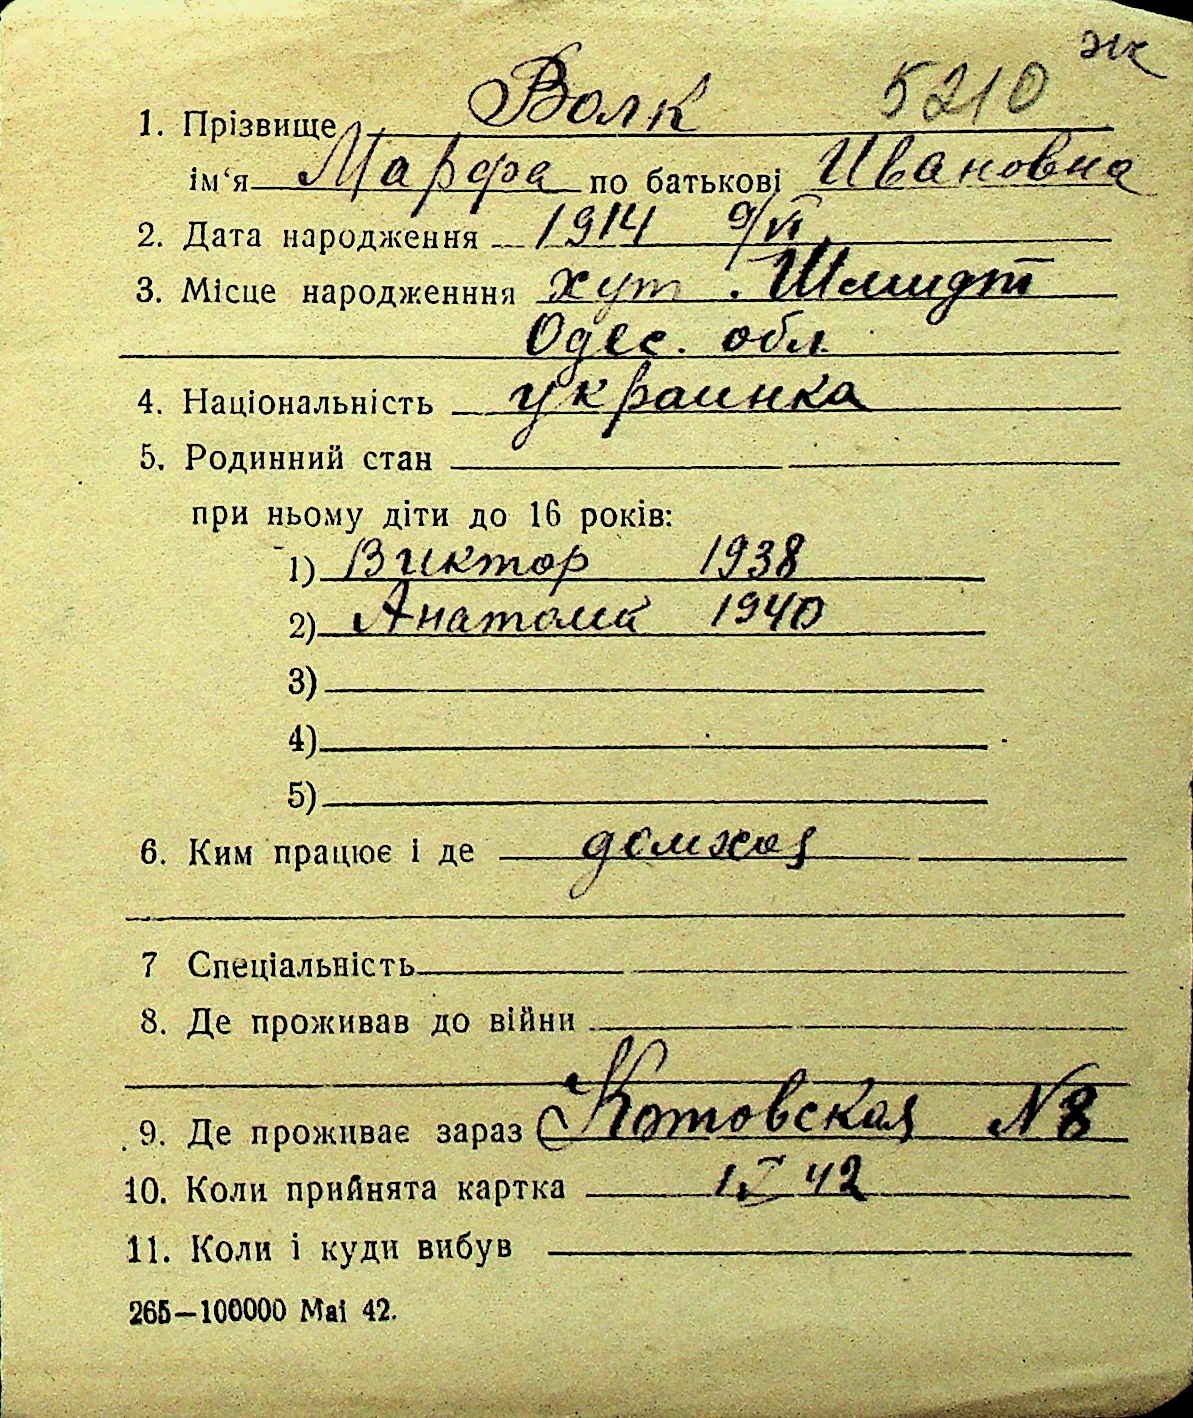 ж
5210
1. Прізвище Волк
ім‘я Марфа по батькові Ивановна
2. Дата народження 1914 9/VI
3. Місце народженння хут. Шмидт
Одес. обл.
4. Національність украинка
5. Родинний стан
при ньому діти до 16 років:
1) Виктор 1938
2) Анатолий 1940
3)
4)
5)
6. Ким працює і де домхоз
7 Спеціальність
8. Де проживав до війни
9. Де проживає зараз Котовская N 8
10. Коли прийнята картка 42
11. Коли і куди вибув
265—100000 Маі 42.